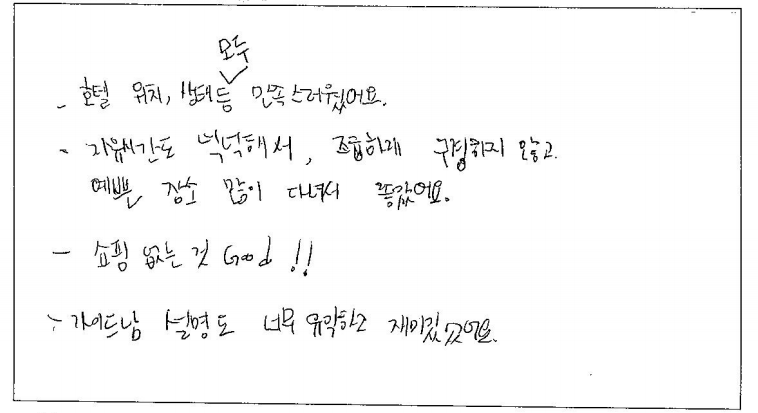 모두
- 호텔 위치, 상태등 만족스러웠어요.
- 자유시간도 넉넉해서, 조급하게 구경하지 않고
예쁜 장소 많이 다녀서 좋았어요.
- 쇼핑 없는 것 Good !!
- 가이드님 설명도 너무 유익하고 재미있었어요.